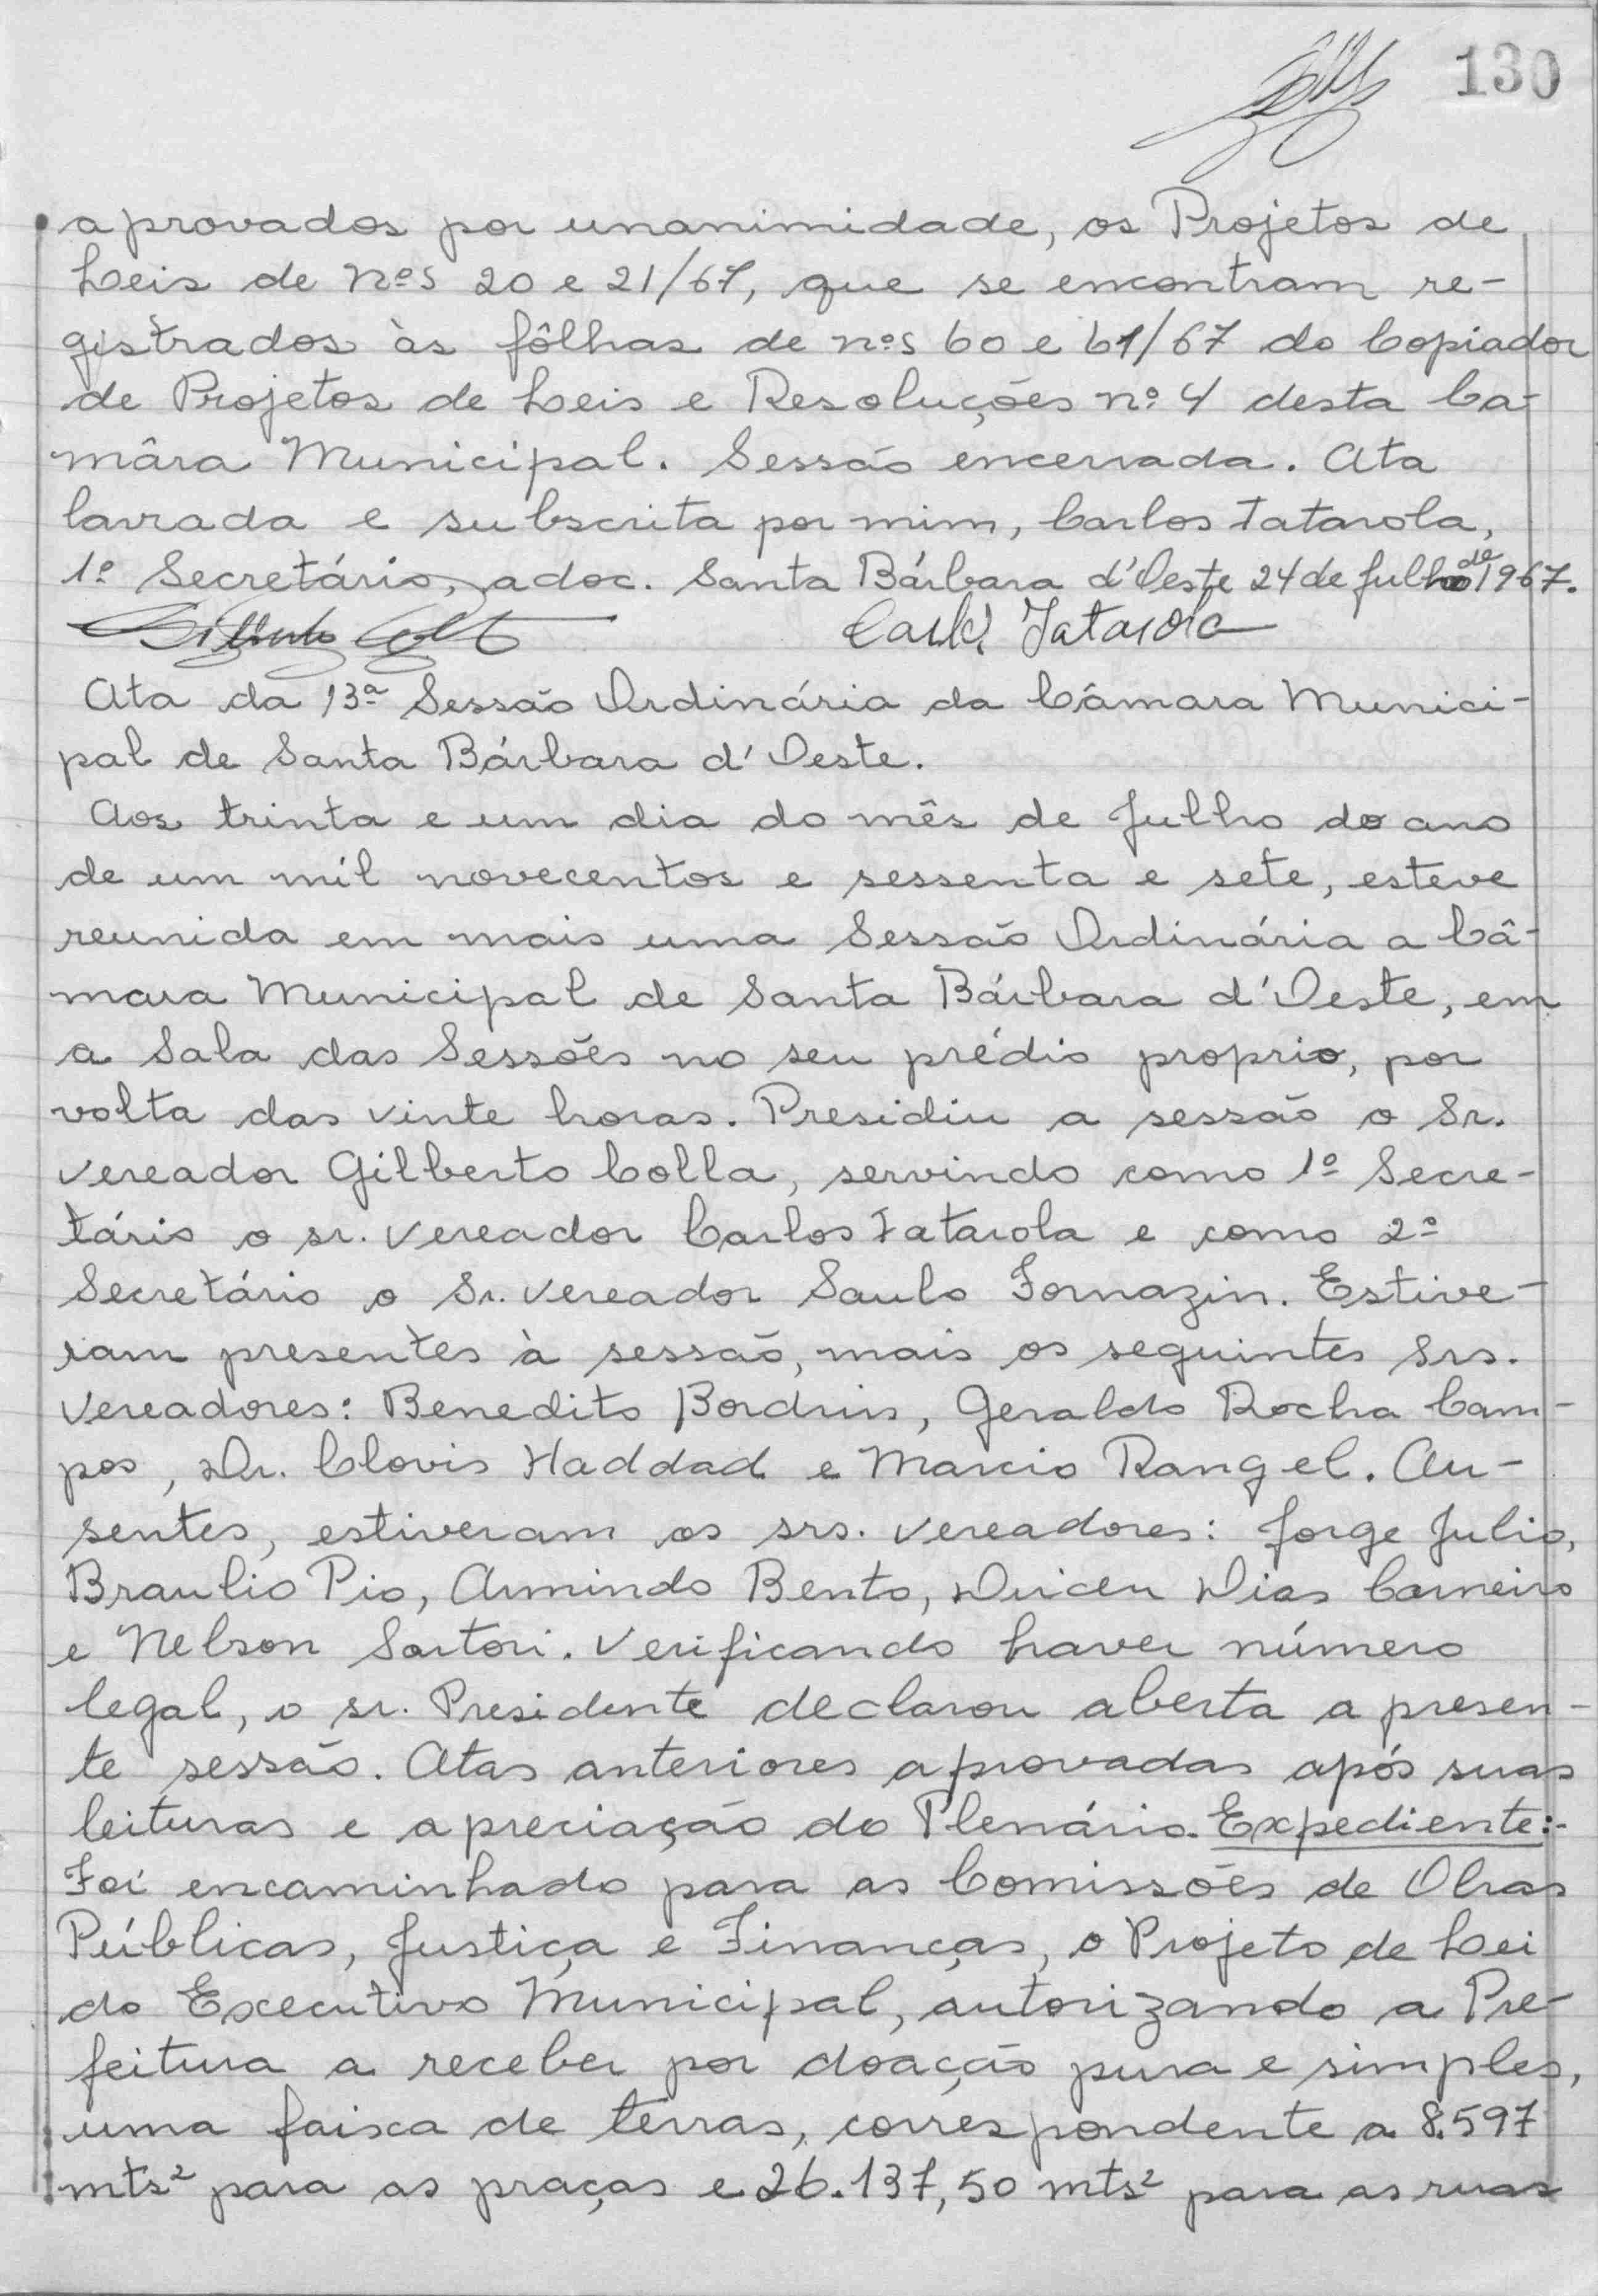 130
aprovados por unanimidade, os Projetos de
Leis de nºs 20 e 21/67, que se encontram re-
gistrados às fôlhas de nºs 60 e 61/67 do Copiador
de Projetos de Leis e Resoluções nº 4 desta Ca-
mâra Municipal. Sessão encerrada. Ata
lavrada e subscrita por mim, Carlos Tatarola,
1º Secretário, adoc. Santa Bárbara d'Oeste 24 de Julho de 1967.
Carlos Tatarola
Ata da 13ª Sessão Ordinária da Câmara Munici-
pal de Santa Bárbara d'Oeste.
Aos trinta e um dia do mês de Julho do ano
de um mil novecentos e sessenta e sete, esteve
reunida em mais uma Sessão Ordinária a Câ-
mara Municipal de Santa Bárbara d'Oeste, em
a Sala das Sessões no seu prédio proprio, por
volta das vinte horas. Presidiu a sessão o Sr.
Vereador Gilberto Colla, servindo como 1º Secre-
tário o sr. Vereador Carlos Tatarola e como 2º
Secretário o Sr. Vereador Saulo Fornazin. Estive-
ram presentes à sessão, mais os seguintes Srs.
Vereadores: Benedito Bordrin, Geraldo Rocha Cam-
pos, Dr. Clovis Haddad e Marcio Rangel. Au-
sentes, estiveram os srs. Vereadores: Jorge Julio,
Braulio Pio, Armindo Bento, Dirceu Dias Carneiro
e Nelson Sartori. Verificando haver número
legal, o sr. Presidente declarou aberta a presen-
te sessão. Atas anteriores aprovadas após suas
leituras e apreciação do Plenário. Expediente:-
Foi encaminhado para as Comissões de Obras
Públicas, Justiça e Finanças, o Projeto de Lei
do Executivo Municipal, autorizando a Pre-
feitura a receber por doação pura e simples,
uma faixa de terras, correspondente a 8.597
mts² para as praças e 26.137,50 mts² para as ruas